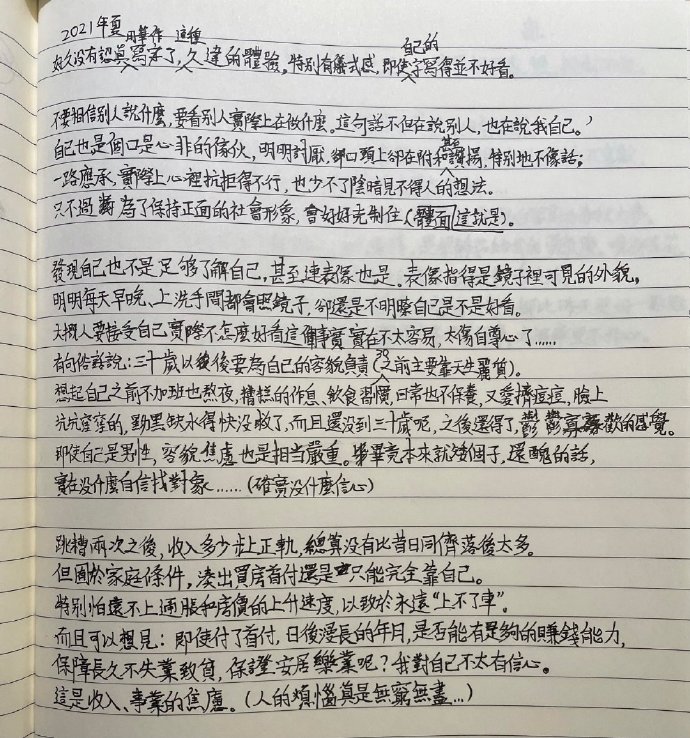 2021年夏
用華件 這種
自己的
好久没有認真寫字了，久違的體驗。特別有儀式感，即使字寫得並不好看。
不要相信別人說什麼，要看別人實際上在做什麼。這句話不但在說別人，也在說我自己。
自己也是個口是心非的傢伙，明明討厭，卻口頭上卻在附和讚揚，特別地不像話；
甚至
一路應承，實際上心裡抗拒得不行，也少不了陰暗見不得人的想法。
只不過為了保持正面的社會形象，會好好克制住（體面這就是）。
發現自己也不是足够了解自己，甚至連表像也是。表像指得是鏡子裡可見的外貌，
明明每天早晚、上洗手間都會照鏡子，卻還是不明瞭自己是不是好看。
大概人要接受自己實際不怎麼好看這個事實實在不太容易，太傷自尊心了……
有句俗話說：三十歲以後要為自己的容貌負責（30之前主要靠天生麗質）。
想起自己之前不加班也熬夜，糟糕的作息、飲食習慣，日常也不保養，又愛擠痘痘，臉上
坑坑窪窪的，黝黑缺水得快没救了，而且還没到三十歲呢，之後還得了，鬱鬱寡歡的感覺。
即使自己是男性，容貌焦慮也是相當嚴重。畢竟本來就矮個子，還醜的話，
實在没什麼自信找對象……（確實没什麼信心）
跳槽兩次之後，收入多少步上正軌，總算没有比昔日同儕落後太多。
但囿於家庭條件，湊出買房首付還是只能完全靠自己。
特別怕遠不上通脹和房價的上升速度，以致於永遠“上不了車”。
而且可以想見：即使付了首付，日後漫長的年月，是否能有足夠的賺錢能力，
保障長久不失業致貧，保證安居樂業呢？我對自己不太有信心。
這是收入、事業的焦慮。（人的煩惱真是無窮無盡…）